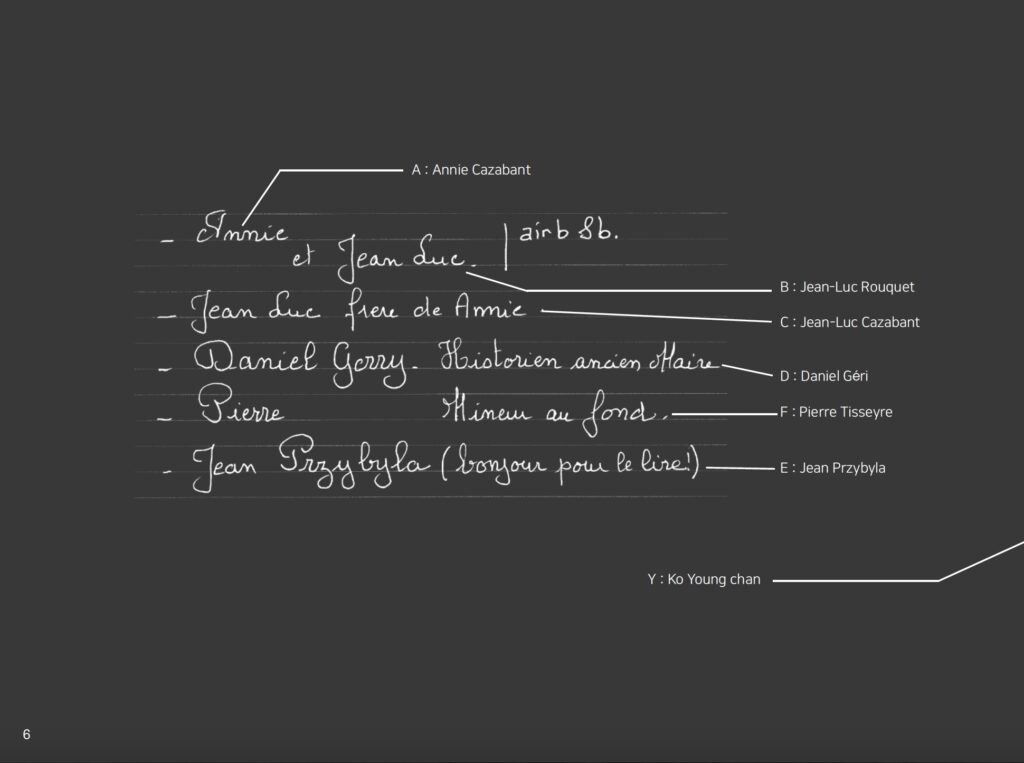 A : Annie Cazabant
- Annie
et Jean Luc. | airb &b.
B : Jean-Luc Rouquet
- Jean Luc frere de Annie
C : Jean-Luc Cazabant
- Daniel Gerry. Historien ancien Maire
D : Daniel Géri
- Pierre Mineur au fond.
F : Pierre Tisseyre
- Jean Przybyla (bonjour pour le lire!)
E : Jean Przybyla
Y : Ko Young chan
6